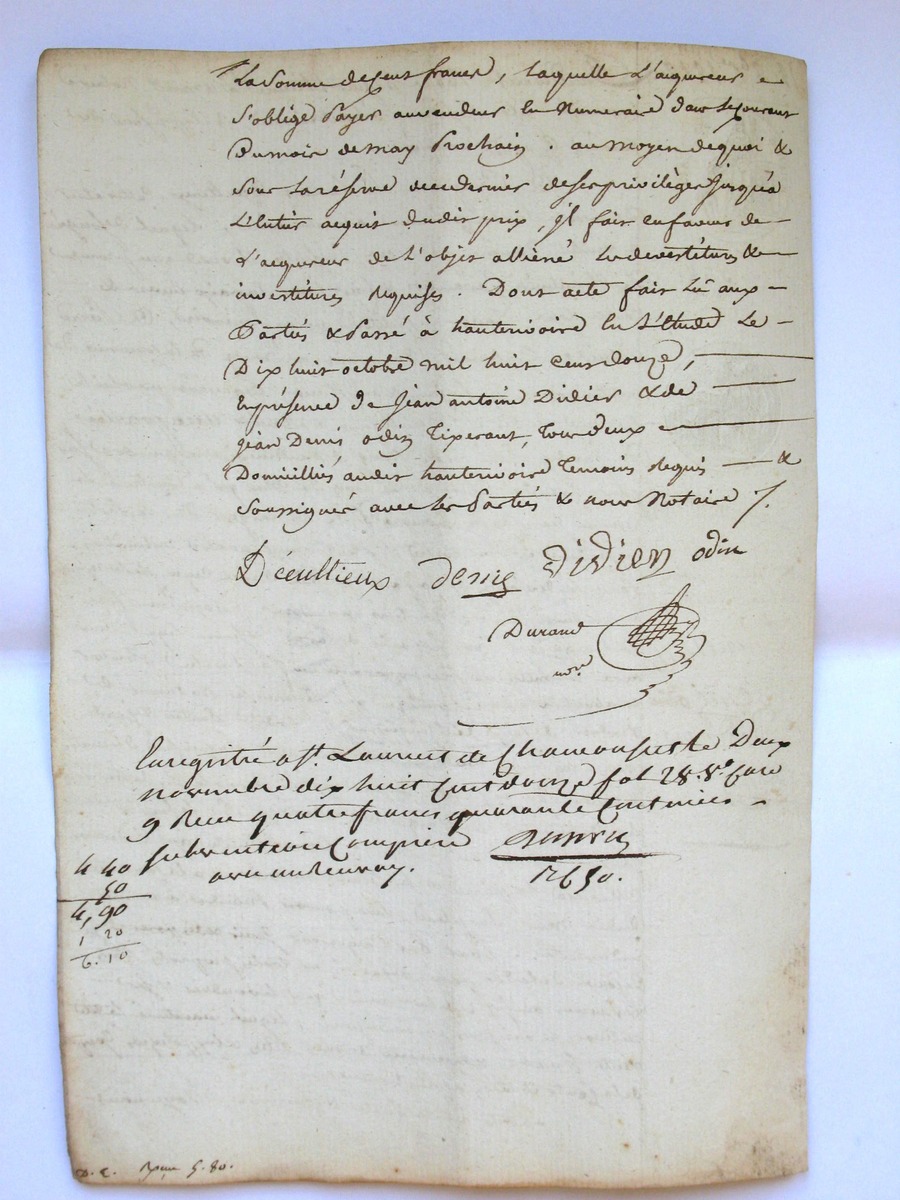 La somme de cent francs, laquelle L'aiquereur
s'oblige Payer au vendeur En Numeraire dans le courant
Du mois de may Prochain. au moyen de quoi &
sous La réserve de ce dernier de ses privilèges jusqu'a
L'Entier acquit dudit prix, jl fait en faveur de
L'acquereur de L'objet alliéné Les devestitures &
investitures Requises. Dont acte fait Lû aux
Parties & Passé à hauterivoire En L'Etude Le
Dix huit octobre mil huit cent douze,
En présence de jean antoine Didier & de
jean Denis odin Tixerant, Tous deux
Domicilliés audit hauterivoire Temoins Requis &
soussignés avec les Parties & nous Notaire
Décultieux Denis Didier odin
Durand
nore.
Enregistré a St. Laurent de Chamousset le Deux
novembre dix huit Cent douze fol 28 Vo. Case
9 Recu quatre francs quarante Centimes
subvention Comprise
12650.
4 40
50
4,90
1 20
6.10
D. E. 5.80.